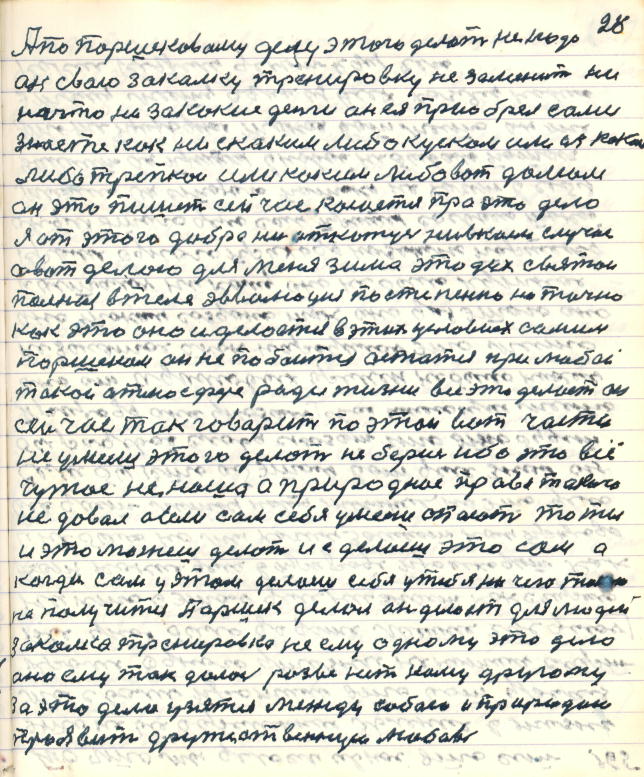 28
А по Паршековому делу этого делать не надо
он свою закалку тренировку не заменит ни
начто ни закокие денги он ея приобрел сами
знаете как ни скаким либо куском или ая кокои
либо трепкои или каким либо вот долгом
он это пишет сейчас комется про это дело
я от этого добра не откожус ни вкаком случае
овот делаю для меня зима это дух святои
полнои в теле эвволюция постипенно но точно
как это оно и делоется в этих условиях самим
Паршеком он не побоится остатся при любои
такои атмосфере ради жизни все это делает он
сейчас так говарит по этои вот части
не умееш этого делот не берис ибо это всё
чужое не наша а природное правa такого
не довал а если сам себя умееш стоит то ты
и это можеш делот и сделаеш это сам а
когда сам у этом делаеш себя у тибя ни чего такого
не получится Паршек делоя он делоет для людей
закалка тренировка не ему одному это дело
оно ему так далос разве нет кому другому
за это дело узятся между собою и природою
проявит дружественную любовь